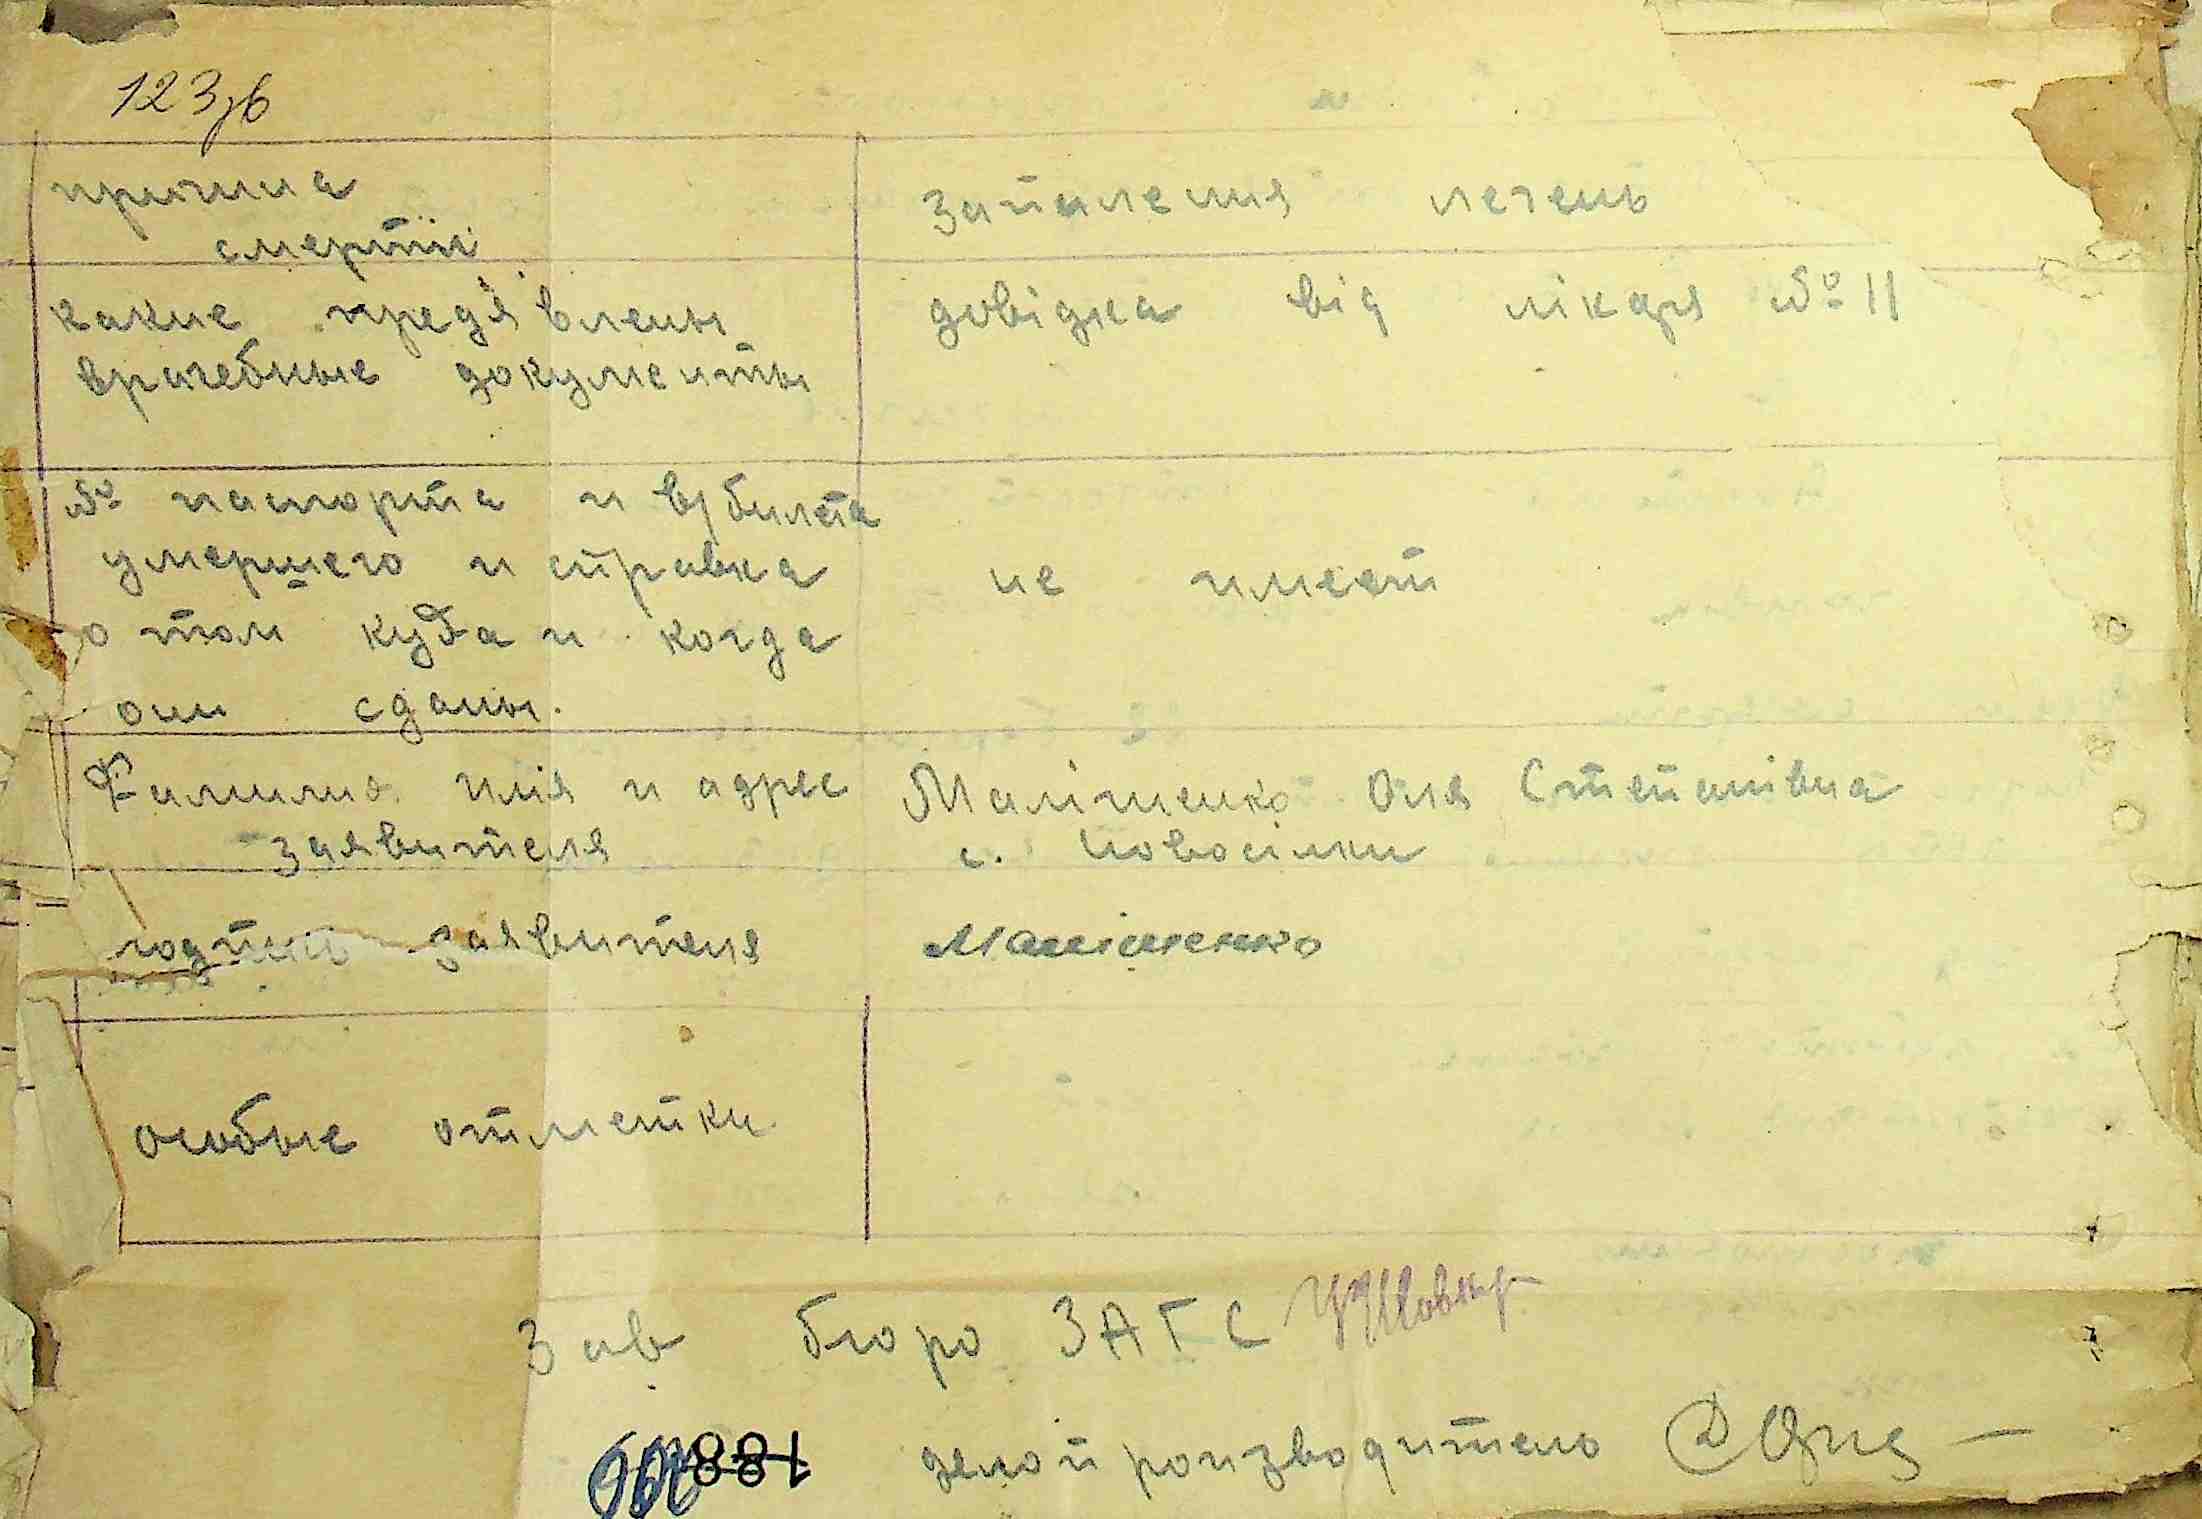 123зв
причина
смерти
Запаления печень
какие предявлены
врачебные документы
довідка від лікаря № 11
№ паспорта и в/билета
умершего и справка
о том куда и когда
они сданы.
не имеет
Фамилия имя и адрес
заявителя
Малішенко Оля Степанівна
с. Новосілки
подпись заявителя
Малішенко
особые отметки
Зав бюро ЗАГС
188
делопроизводитель